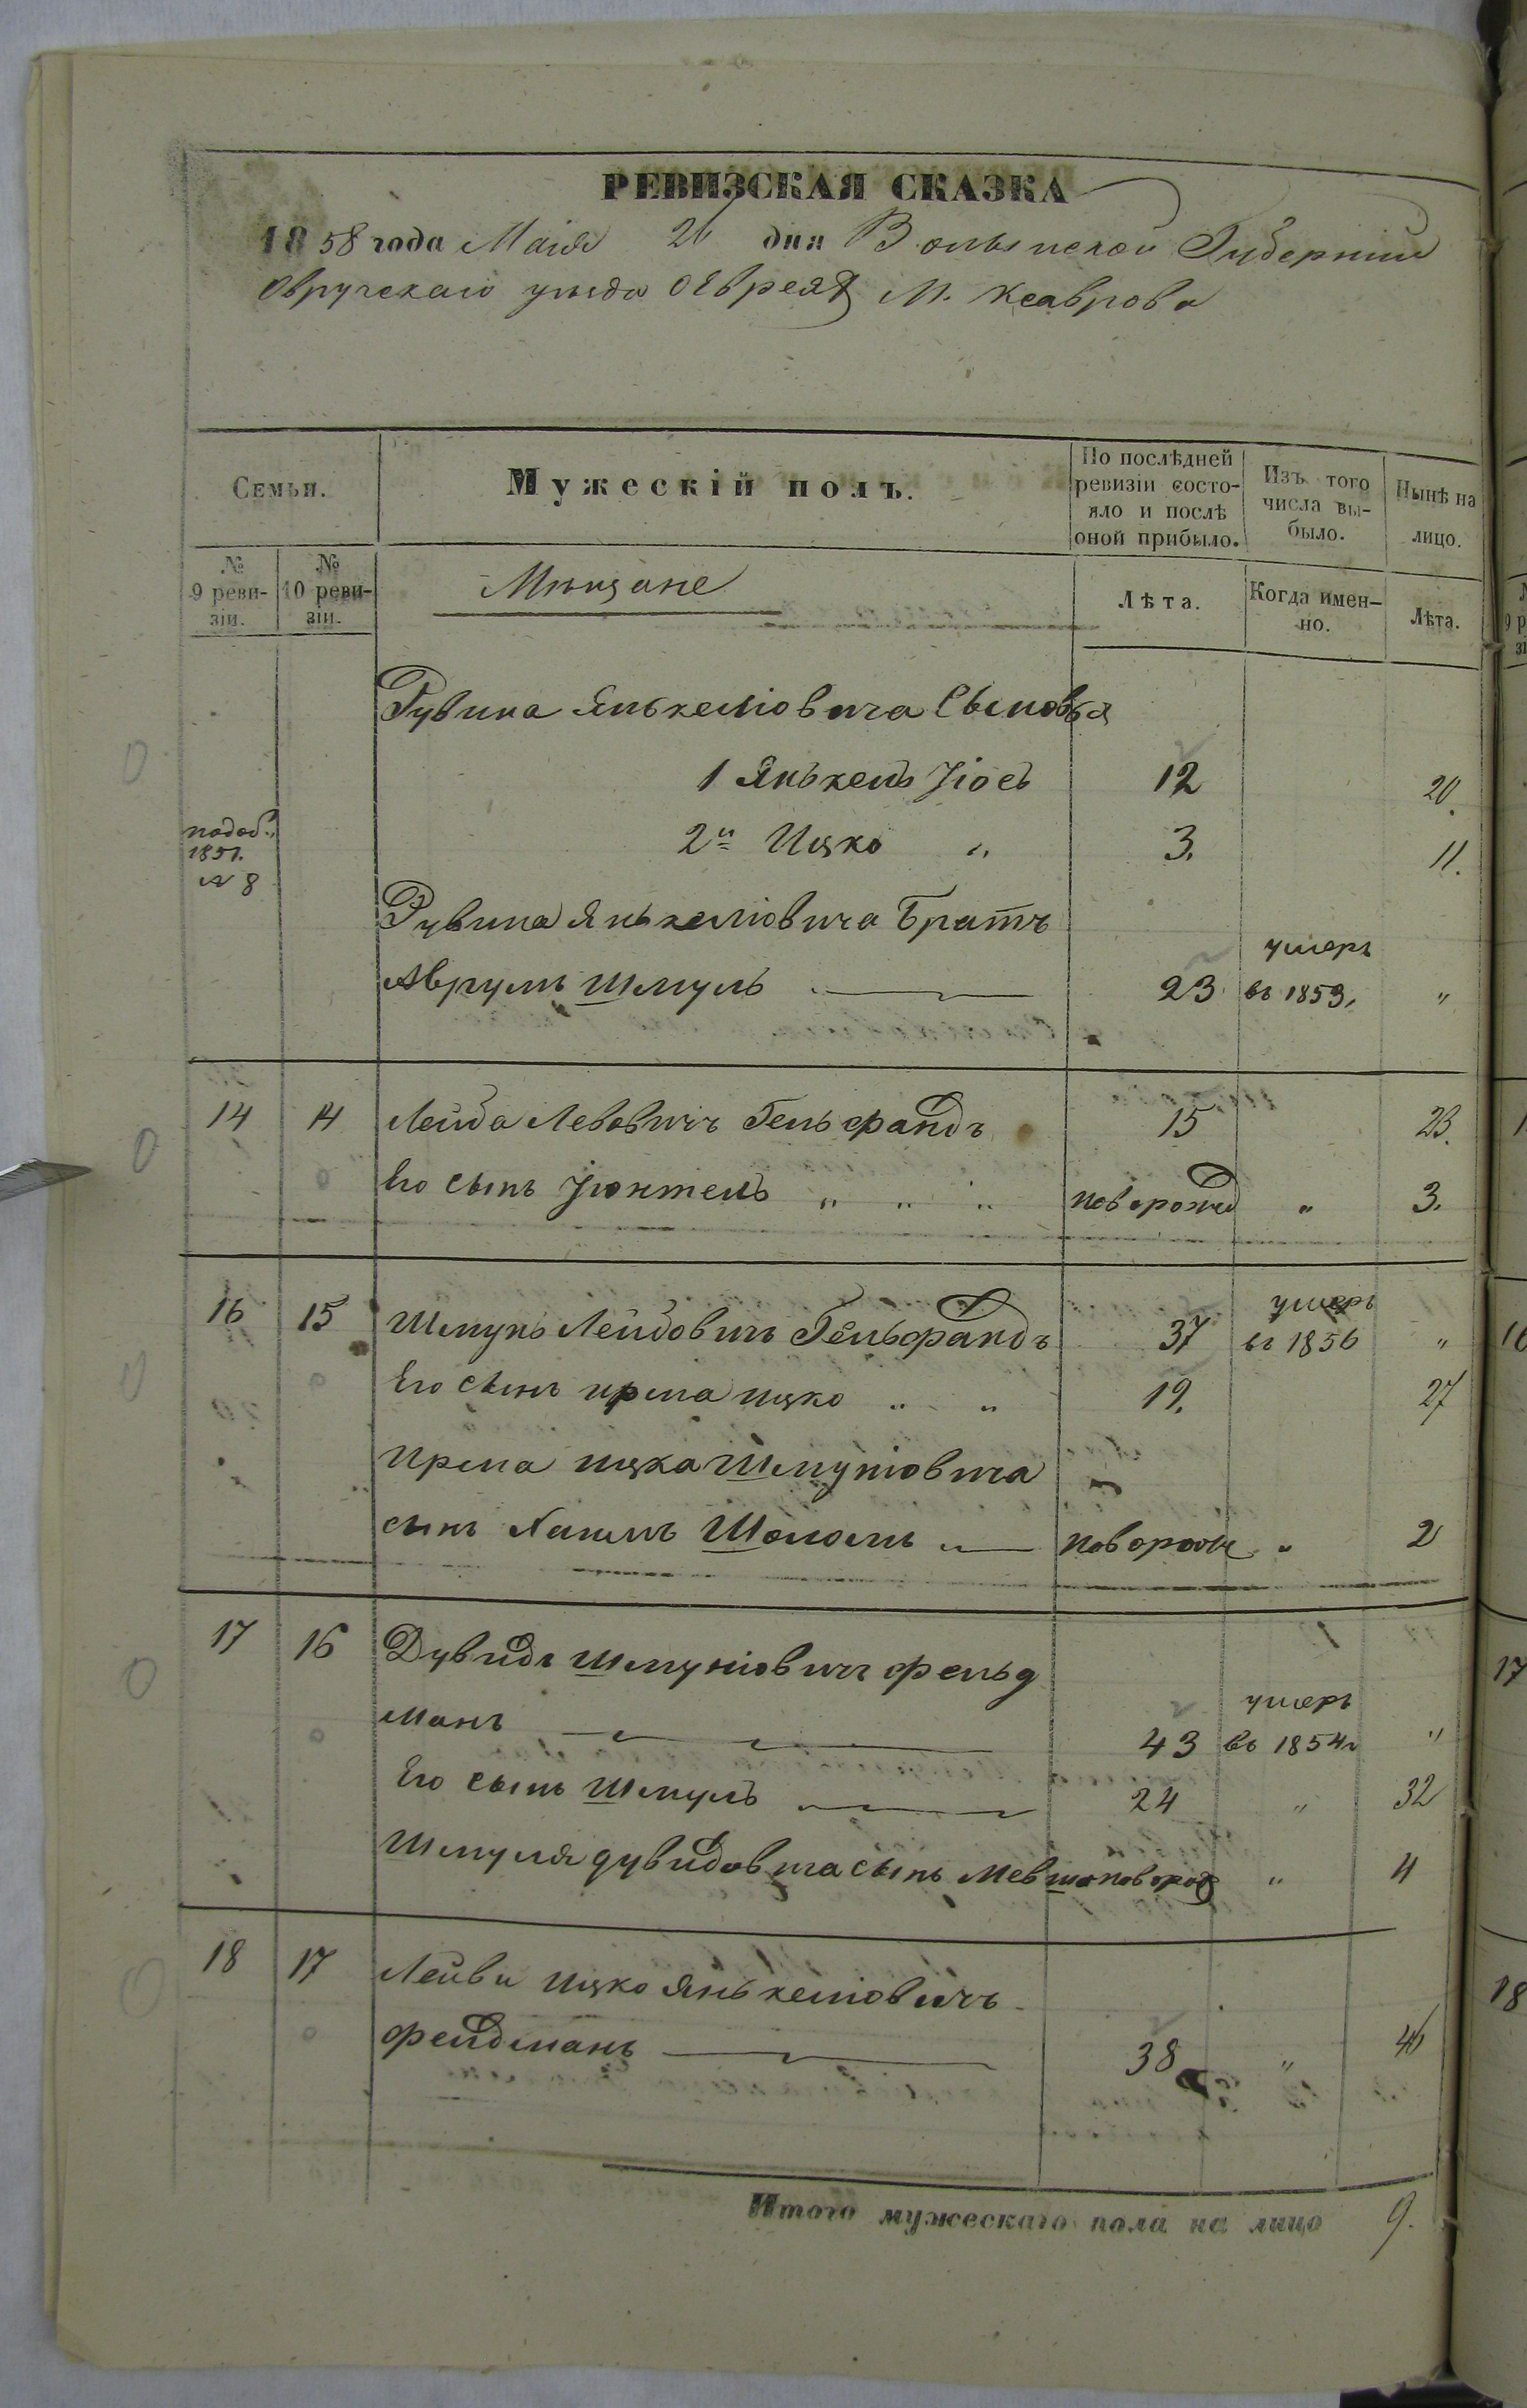 РЕВИЗСКАЯ СКАЗКА
1858 года Маія 26 дня Волынской Губерніи
Овручскаго уезда о Евреяхъ М. Ксаврова
Семьи.
Мужескій полъ.
По послѣдней ревизіи состо-
яло и послѣ
оной прибыло.
Изъ того
числа вы-
было.
Нынѣ на
лицо.
№
9 реви-
зіи.
№
10 реви-
зіи.
Мѣщане
Лѣта.
Когда имен-
но.
Лѣта.
Рувина Янькеліовича Сыновья
1 Янькель Іось 12 20.
2й Ицко „ 3. 11.
1851.
№ 8
Рувина Янькеліовича Братъ
умеръ
Аврумъ Шмуль 23 въ 1853. „
14 14 Лейба Левовичъ Гельфандъ 15 23.
Его сынъ Іюнтель „ „ „ новорожд „ 3.
16 15 Шмунь Лейбовичъ Гельфандъ 37 умеръ
въ 1856 „
Его сынъ Ирма Ицко „ „ 19. 27
Ирма Ицка Шмуніовича
сынъ Хаимъ Шоломъ новорож „ 2
17 16 Дувидъ Шмуніовичъ Фельд
манъ 43 умеръ
въ 1854 „
Его сынъ Шмуль 24 „ 32
Шмуля Дувидовича сынъ Мевша новорож „ 4
18 17 Лейви Ицко Янькеліовичъ
Фельдманъ 38 „ 46
Итого мужескаго пола на лицо 9.